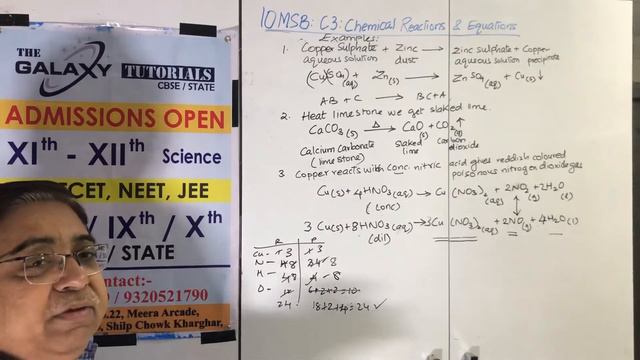 THE
GALAXY TUTORIALS
CBSE / STATE
ADMISSIONS OPEN
XIth - XIIth Science
CET, NEET, JEE
/ IXth / Xth
/ STATE
ntact:-
/ 9320521790
.22, Meera Arcade,
, Shilp Chowk Kharghar,
10MSB: C3: Chemical Reactions & Equations
Examples:
1. Copper Sulphate + Zinc → zinc sulphate + Copper
aqueous solution dust aqueous solution precipitate
(Cu)(SO4)(aq) + Zn(s) → ZnSO4(aq) + Cu(s)↓
AB + C → BC + A
2. Heat limestone we get slaked lime.
CaCO3(s) Δ→ CaO(s) + CO2(g)↑
Calcium carbonate slaked carbon
(limestone) lime dioxide
3 Copper reacts with conc. nitric acid gives reddish coloured
poisonous nitrogen dioxide gas
Cu(s) + 4HNO3(aq) → Cu(NO3)2(aq) + 2NO2(g) + 2H2O(l)
(conc)
3Cu(s) + 8HNO3(aq) → 3Cu(NO3)2(aq) + 2NO(g) + 4H2O(l)
(dil)
R P
Cu - 1 3 1 3
8 8
H - 8 8
O -
24 18+2+4=24 ✓